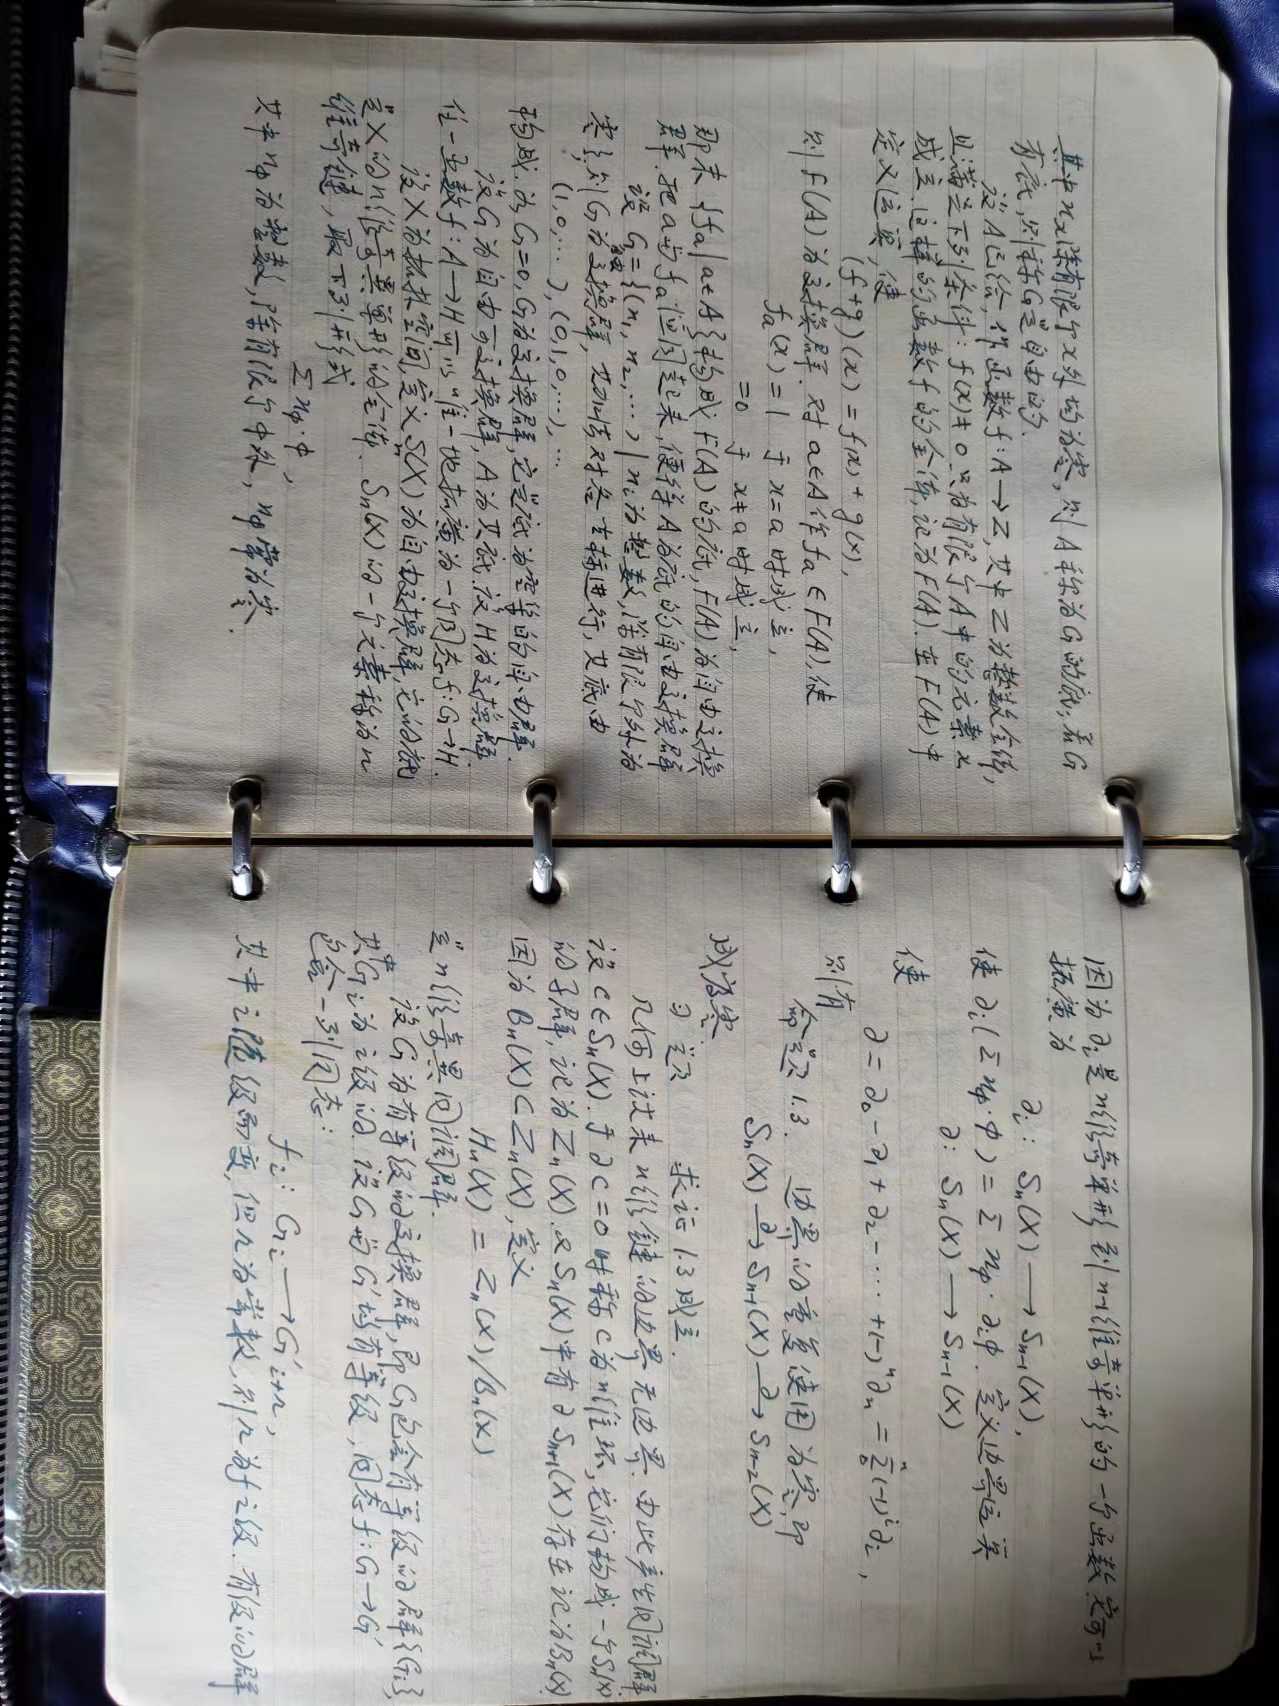 其中x除有限个x外均为零,则A称为G的底,若G
有底,则称G是自由的.
设A已给,作函数f:A→Z,其中Z为整数全体,
且满足下列条件:f(x)≠0只为有限个A中的元素x
成立.这样的函数f的全体,记为F(A).在F(A)中
定义运算,使
(f+g)(x)=f(x)+g(x),
则F(A)为交换群.对a∈A作fa∈F(A),使
fa(x)=1 于 x=a时成立,
=0 于 x≠a时成立,
那末{fa|a∈A}构成F(A)的底,F(A)为自由交换
群.把a与fa恒同起来,便得A为底的自由交换群
设G={(n₁,n₂,…)|nᵢ为整数,除有限个外为
零},则G为交换群,加法对各支轴进行,其底由
(1,0,…),(0,1,0,…),…
构成.若G=0,G为交换群,它是底为空集的自由群.
设G为自由可交换群,A为其底.设H为交换群.
任一函数f:A→H可以唯一地拓广为一个同态f:G→H.
设X为拓扑空间,定义Sn(X)为自由交换群,它的底
是X的n维奇异单形的全体.Sn(X)的一个元素称为n
维奇链,取下列形式
Σnφ·φ,
其中nφ为整数,除有限个φ外,nφ常为零.
因为∂i是n维奇单形到n-1维奇单形的一个函数,它可以
拓广为
∂i:Sn(X)→Sn-1(X),
使∂i(Σnφ·φ)=Σnφ·∂iφ.定义边界运算
∂:Sn(X)→Sn-1(X)
使
∂=∂₀-∂₁+∂₂-…+(-)ⁿ∂n=Σ(-1)ⁱ∂i,
则有
命题1.3. 边界的重复使用为零,即
Sn(X)→Sn-1(X)→Sn-2(X)
成为零.
习题 求证1.3成立.
几何上说来n维链的边界无边界.由此产生同调群.
设c∈Sn(X).于∂c=0时称c为n维环,它们构成一个Sn(X)
的子群,记为Zn(X).又Sn(X)中有∂Sn+1(X)存在记为Bn(X).
因为Bn(X)⊂Zn(X),定义
Hn(X)=Zn(X)/Bn(X)
是n维奇异同调群.
设G为有等级的交换群,即G包含有等级的群{Gi},
其中Gi为i级的.设G与G′均有等级,同态f:G→G′
包含一列同态:
fi:Gi→G′i+r,
其中i随级而变,但r为常数,则r为f之级.有级的群